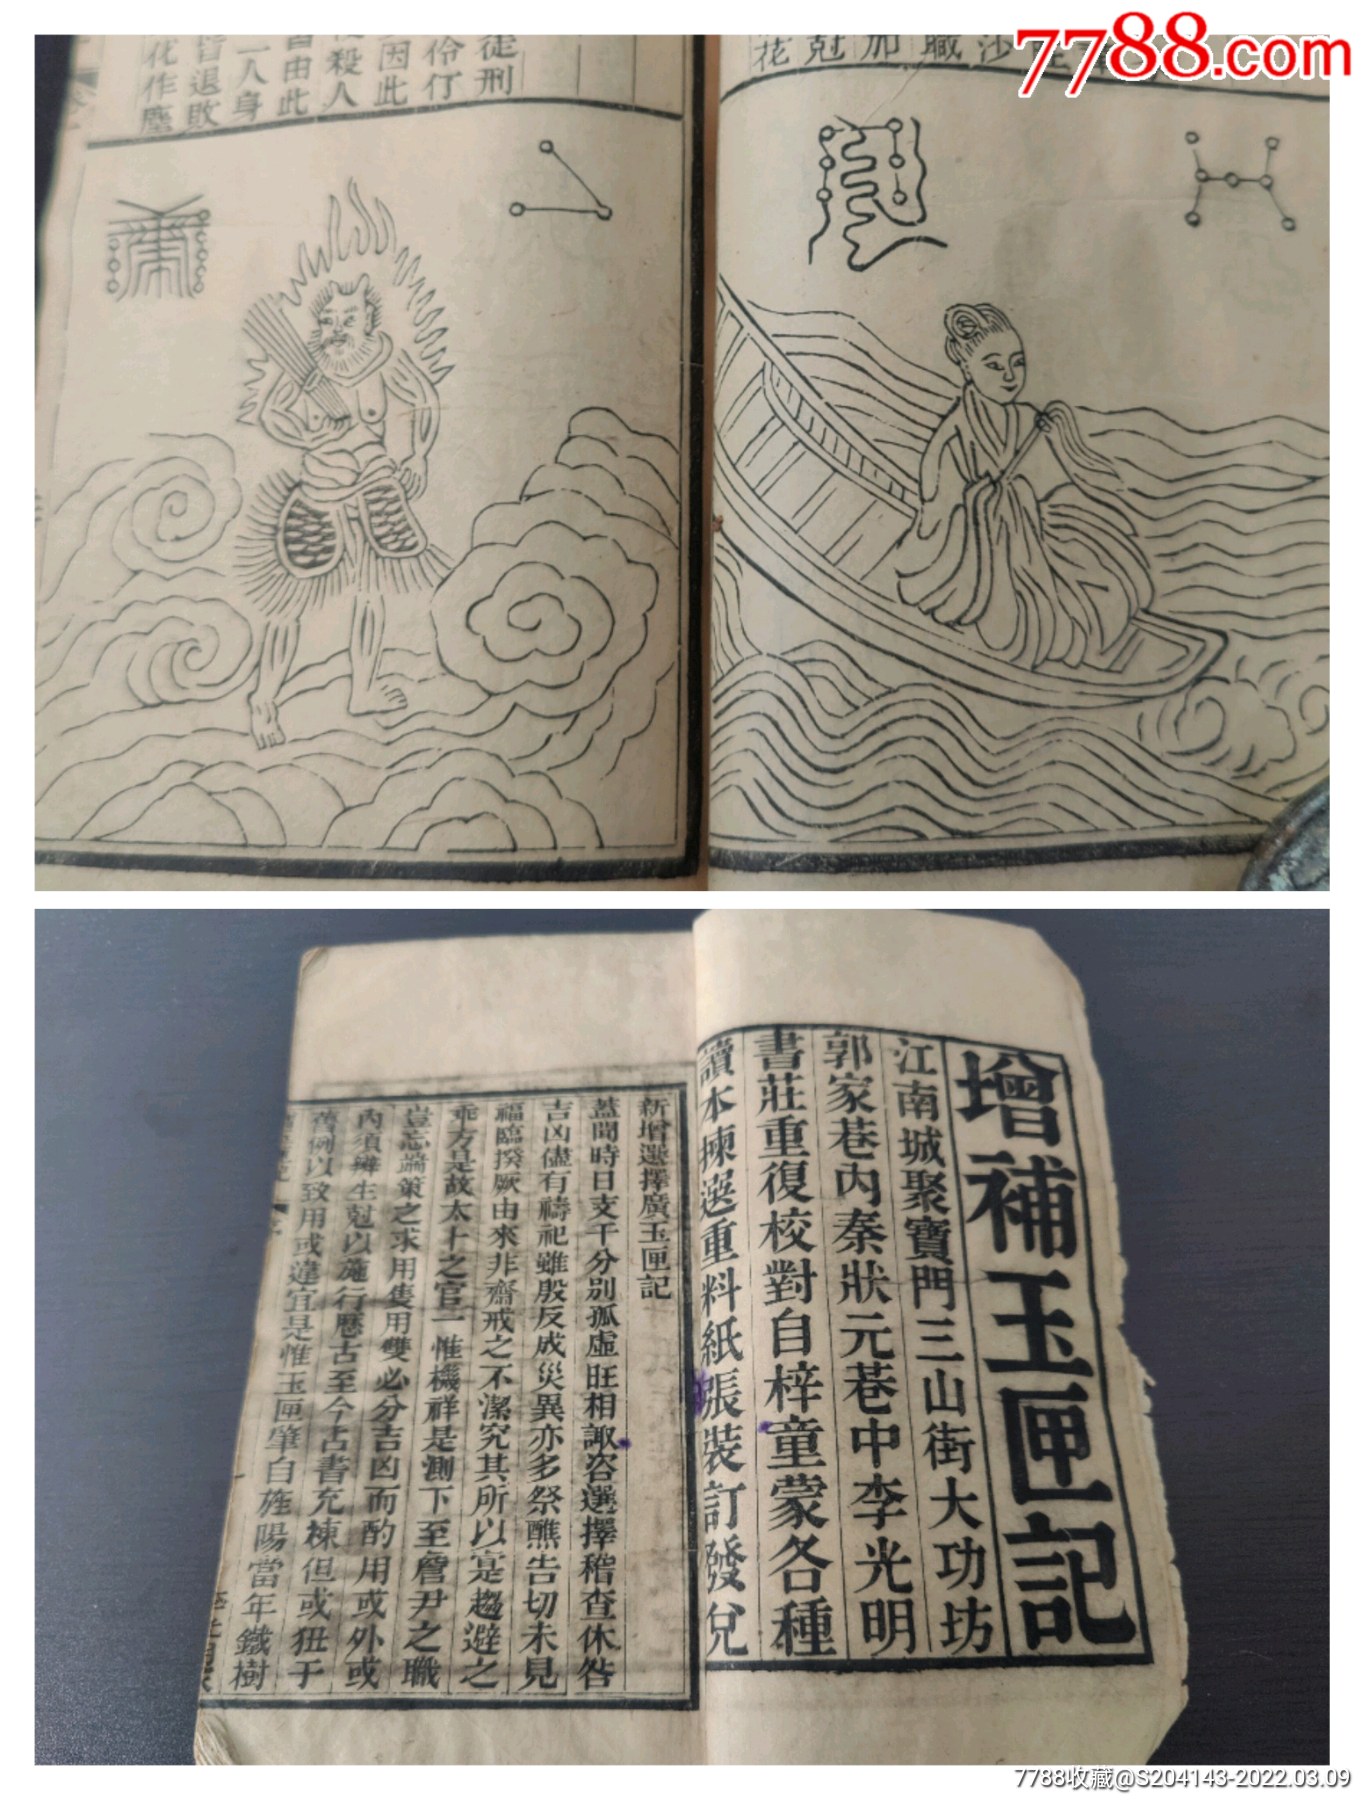 7788.com
徒刑
伶仃
因此
殺人
由此
一人身
皆退敗
花作塵
沙
職
加
冠
花
增補玉匣記
江南城聚寶門三山街大功坊
郭家巷內秦狀元巷中李光明
書莊重復校對自梓童蒙各種
讀本揀選重料紙張裝訂發兌
新增選擇廣玉匣記
蓋聞時日支干分別孤虛旺相諏咨選擇稽查休咎
吉凶儘有禱祀雖殷反成災異亦多祭醮告切未見
福臨揆厥由來非齋戒之不潔究其所以寔趨避之
乖方是故太卜之官一惟機祥是測下至詹尹之職
豈忘端策之求用隻用雙必分吉凶而酌用或外或
內須辨生尅以施行歷古至今占書充棟但或狃于
舊例以致用或違宜是惟玉匣肇自旌陽當年鐵樹
7788收藏@S204143-2022.03.09